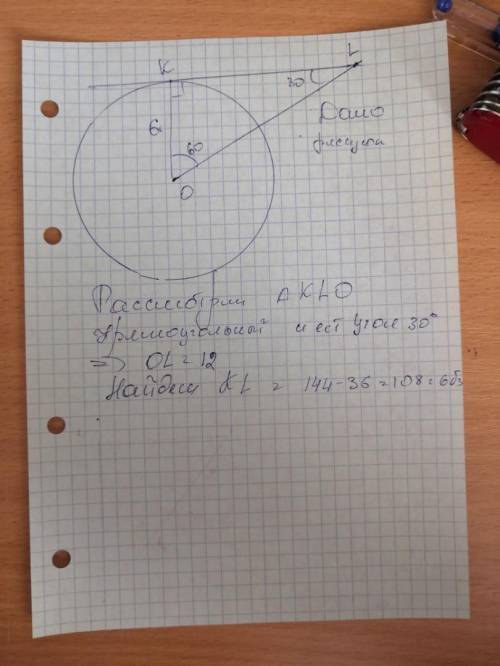 K
L
30
6
60
O
Дано
рисунок
Рассмотрим △KLO
Прямоугольный и ест угол 30°
=> OL = 12
Найдем KL = 144-36=108=6√3